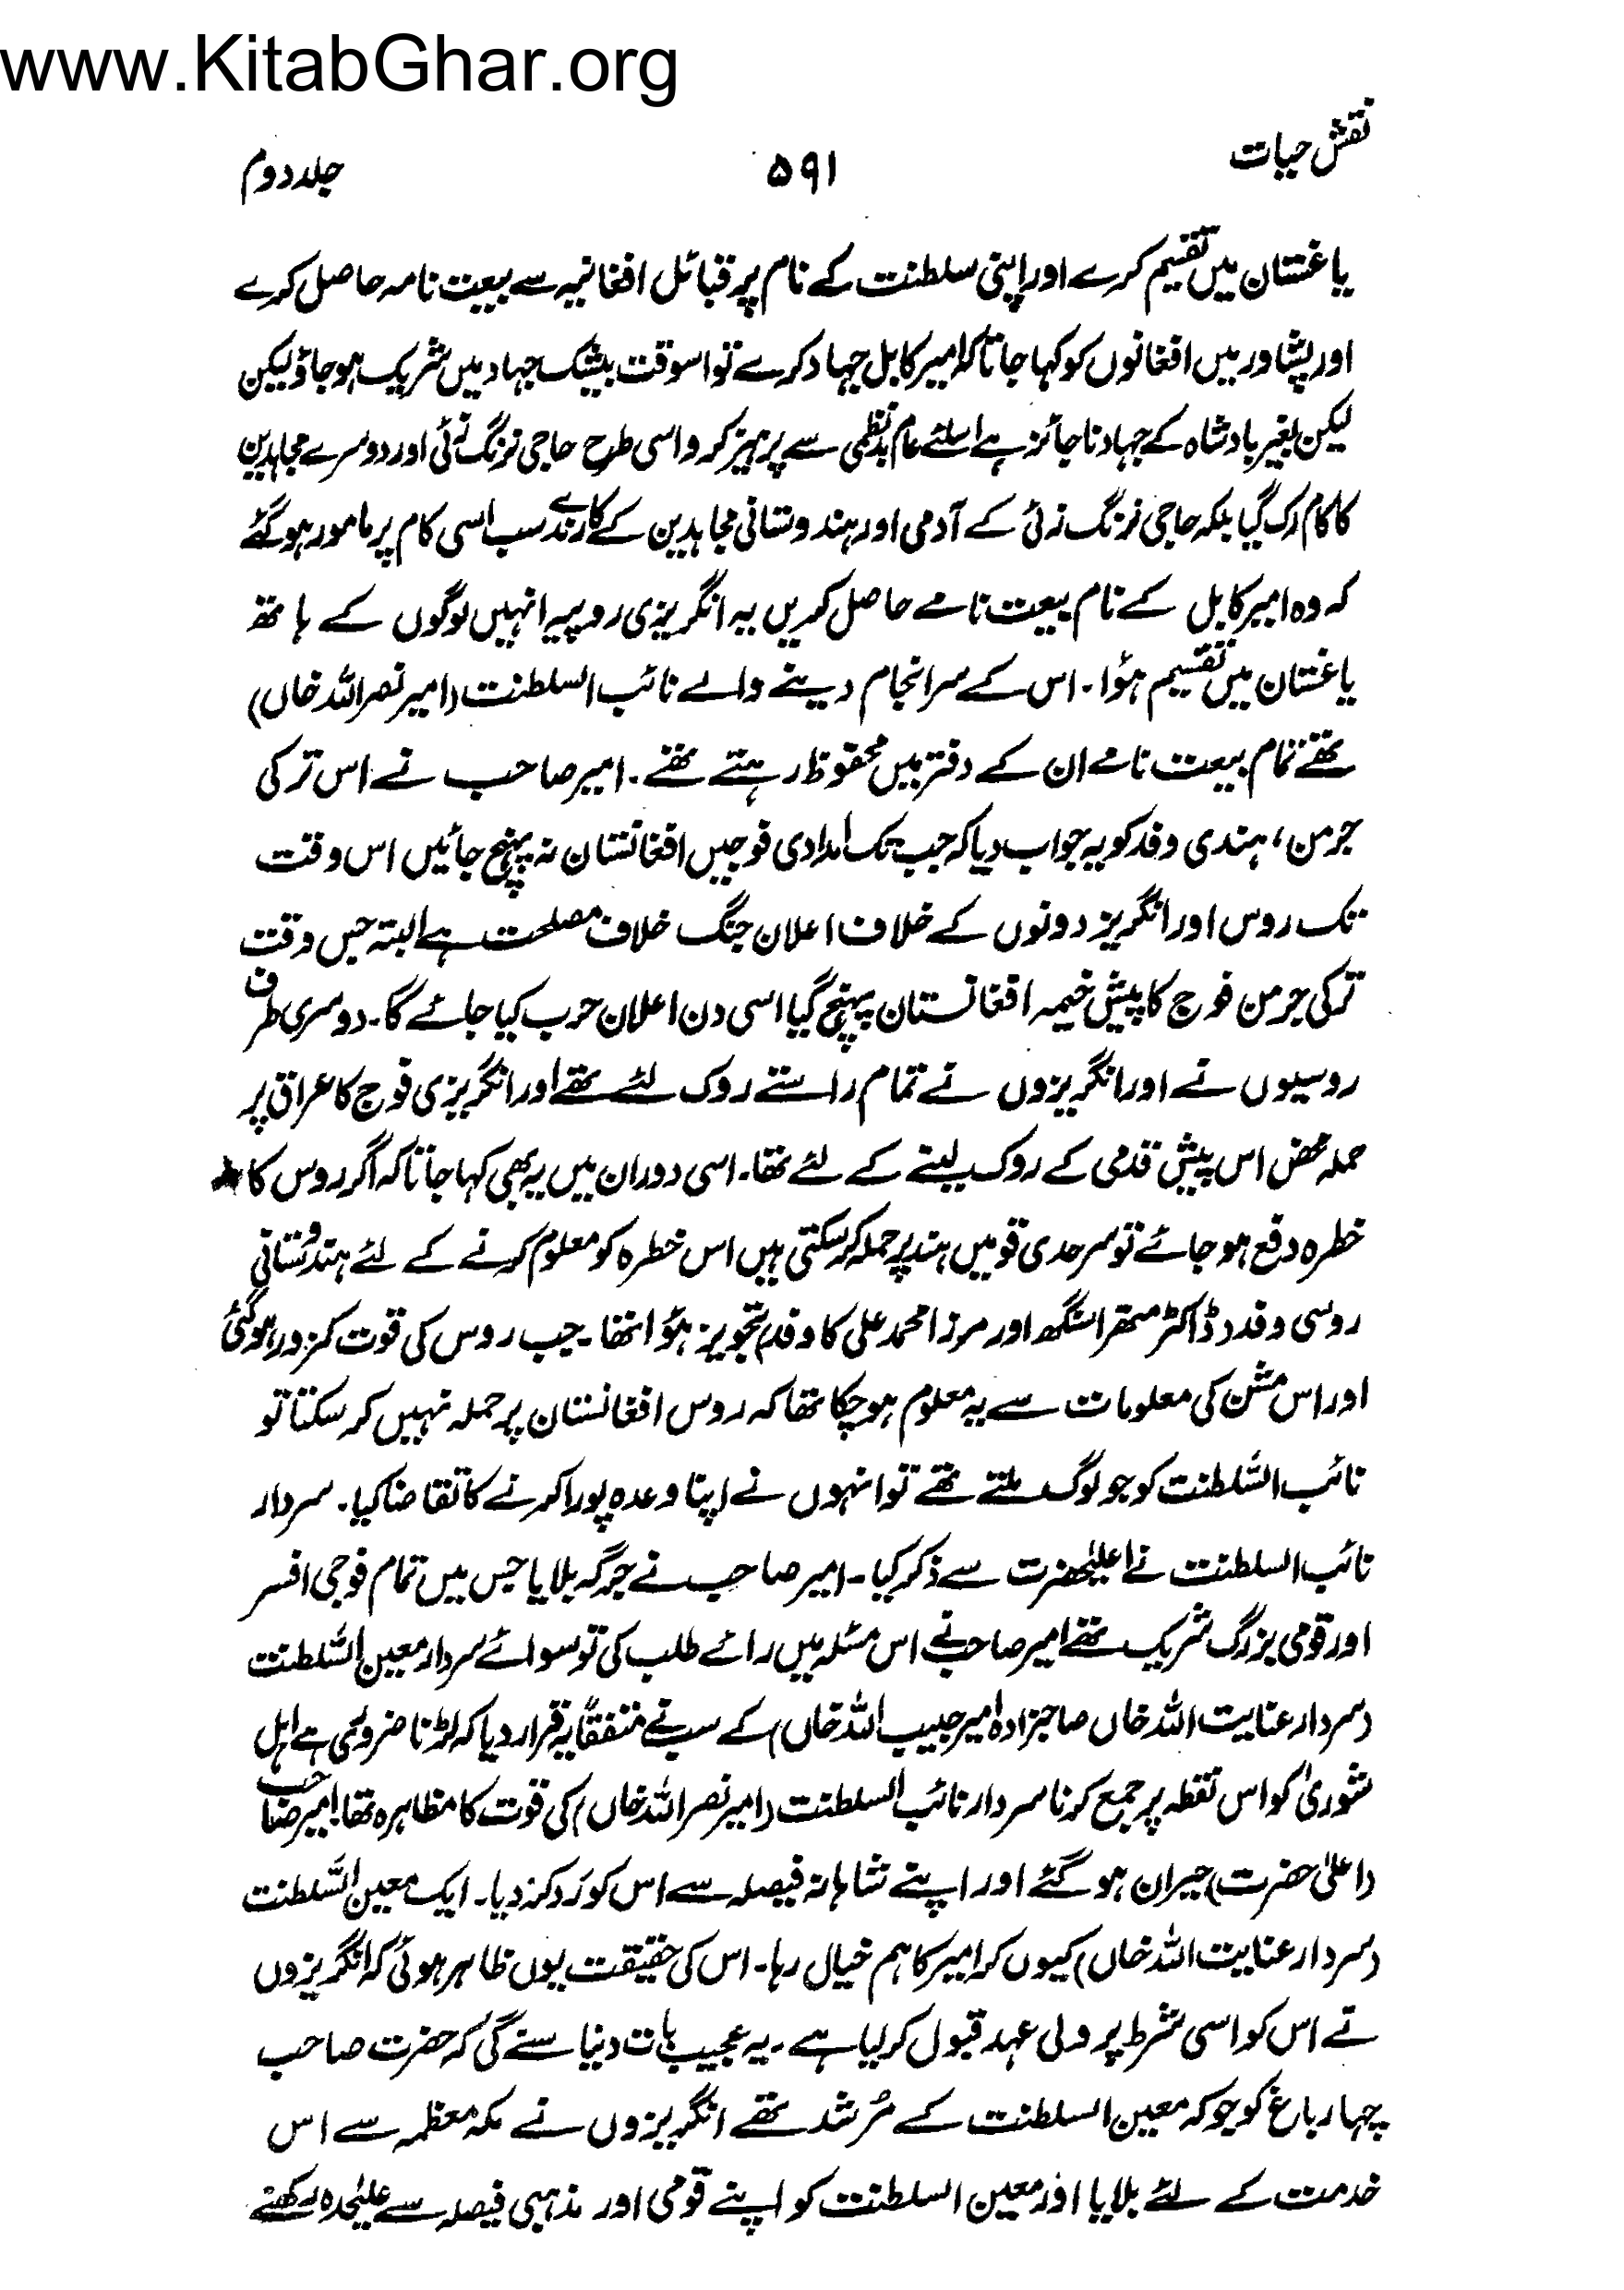 www.KitabGhar.org
نقش حیات ۵۹۱ جلد دوم
یاغستان میں تقسیم کرے اور اپنی سلطنت کے نام پر قبائل افغانیہ سے بیعت نامہ حاصل کرے
اور پشاور میں افغانوں کو کہا جاتا کہ امیر کابل جہاد کرے تو اسوقت بیشک جہاد میں شریک ہو جاؤ لیکن
لیکن بغیر بادشاہ کے جہاد ناجائز ہے اسلئے عام بدنظمی سے پرہیز کرو اسی طرح حاجی ترنگ زئی اور دوسرے مجاہدین
کا کام رک گیا بلکہ حاجی ترنگ زئی کے آدمی اور ہندوستانی مجاہدین کے کارندے سب اسی کام پر مامور ہو گئے
کہ وہ امیر کابل کے نام بیعت نامے حاصل کریں یہ انگریزی روپیہ انہیں لوگوں کے ہاتھ
یاغستان میں تقسیم ہؤا۔ اس کے سرانجام دینے والے نائب السلطنت (امیر نصر اللہ خاں)
تھے تمام بیعت نامے ان کے دفتر میں محفوظ رہتے تھے۔ امیر صاحب نے اس ترکی
جرمن، ہندی وفد کو یہ جواب دیا کہ جب تک امدادی فوجیں افغانستان نہ پہنچ جائیں اس وقت
تک روس اور انگریز دونوں کے خلاف اعلان جنگ خلاف مصلحت ہے البتہ جس وقت
ترکی جرمن فوج کا پیش خیمہ افغانستان پہنچ گیا اسی دن اعلان حرب کیا جائے گا۔ دوسری طرف
روسیوں نے اور انگریزوں نے تمام راستے روک لئے تھے اور انگریزی فوج کا عراق پر
حملہ محض اس پیش قدمی کے روک لینے کے لئے تھا۔ اسی دوران میں یہ بھی کہا جاتا کہ اگر روس کا
خطرہ دفع ہو جائے تو سرحدی قومیں ہند پر حملہ کر سکتی ہیں اس خطرہ کو معلوم کرنے کے لئے ہندوستانی
روسی وفد (ڈاکٹر متھرا سنگھ اور مرزا محمد علی کا وفد) تجویز ہؤا تھا۔ جب روس کی قوت کمزور ہو گئی
اور اس مشن کی معلومات سے یہ معلوم ہو چکا تھا کہ روس افغانستان پر حملہ نہیں کر سکتا تو
نائب السّلطنت کو جو لوگ ملتے تھے تو انہوں نے اپنا وعدہ پورا کرنے کا تقاضا کیا۔ سردار
نائب السلطنت نے اعلیٰحضرت سے ذکر کیا۔ امیر صاحب نے جرگہ بلایا جس میں تمام فوجی افسر
اور قومی بزرگ شریک تھے امیر صاحب نے اس مسئلہ میں رائے طلب کی تو سوائے سردار معین السّلطنت
(سردار عنایت اللہ خاں صاحبزادہ امیر حبیب اللہ خاں) کے سب نے متفقاً یہ قرار دیا کہ لڑنا ضروری ہے اہل
شوریٰ کو اس نقطہ پر جمع کرنا سردار نائب السلطنت (امیر نصر اللہ خاں) کی قوت کا مظاہرہ تھا امیر صاحب
(اعلیٰ حضرت) حیران ہو گئے اور اپنے شاہانہ فیصلہ سے اس کو رَد کر دیا۔ ایک معین السّلطنت
(سردار عنایت اللہ خاں) کیوں کر امیر کا ہم خیال رہا۔ اس کی حقیقت یوں ظاہر ہوئی کہ انگریزوں
نے اس کو اسی شرط پر ولی عہد قبول کر لیا ہے۔ یہ عجیب بات دنیا سنے گی کہ حضرت صاحب
چہار باغ کو جو کہ معین السلطنت کے مُرشد تھے انگریزوں نے مکہ معظمہ سے اس
خدمت کے لئے بلایا اور معین السلطنت کو اپنے قومی اور مذہبی فیصلہ سے علیٰحدہ رکھنے